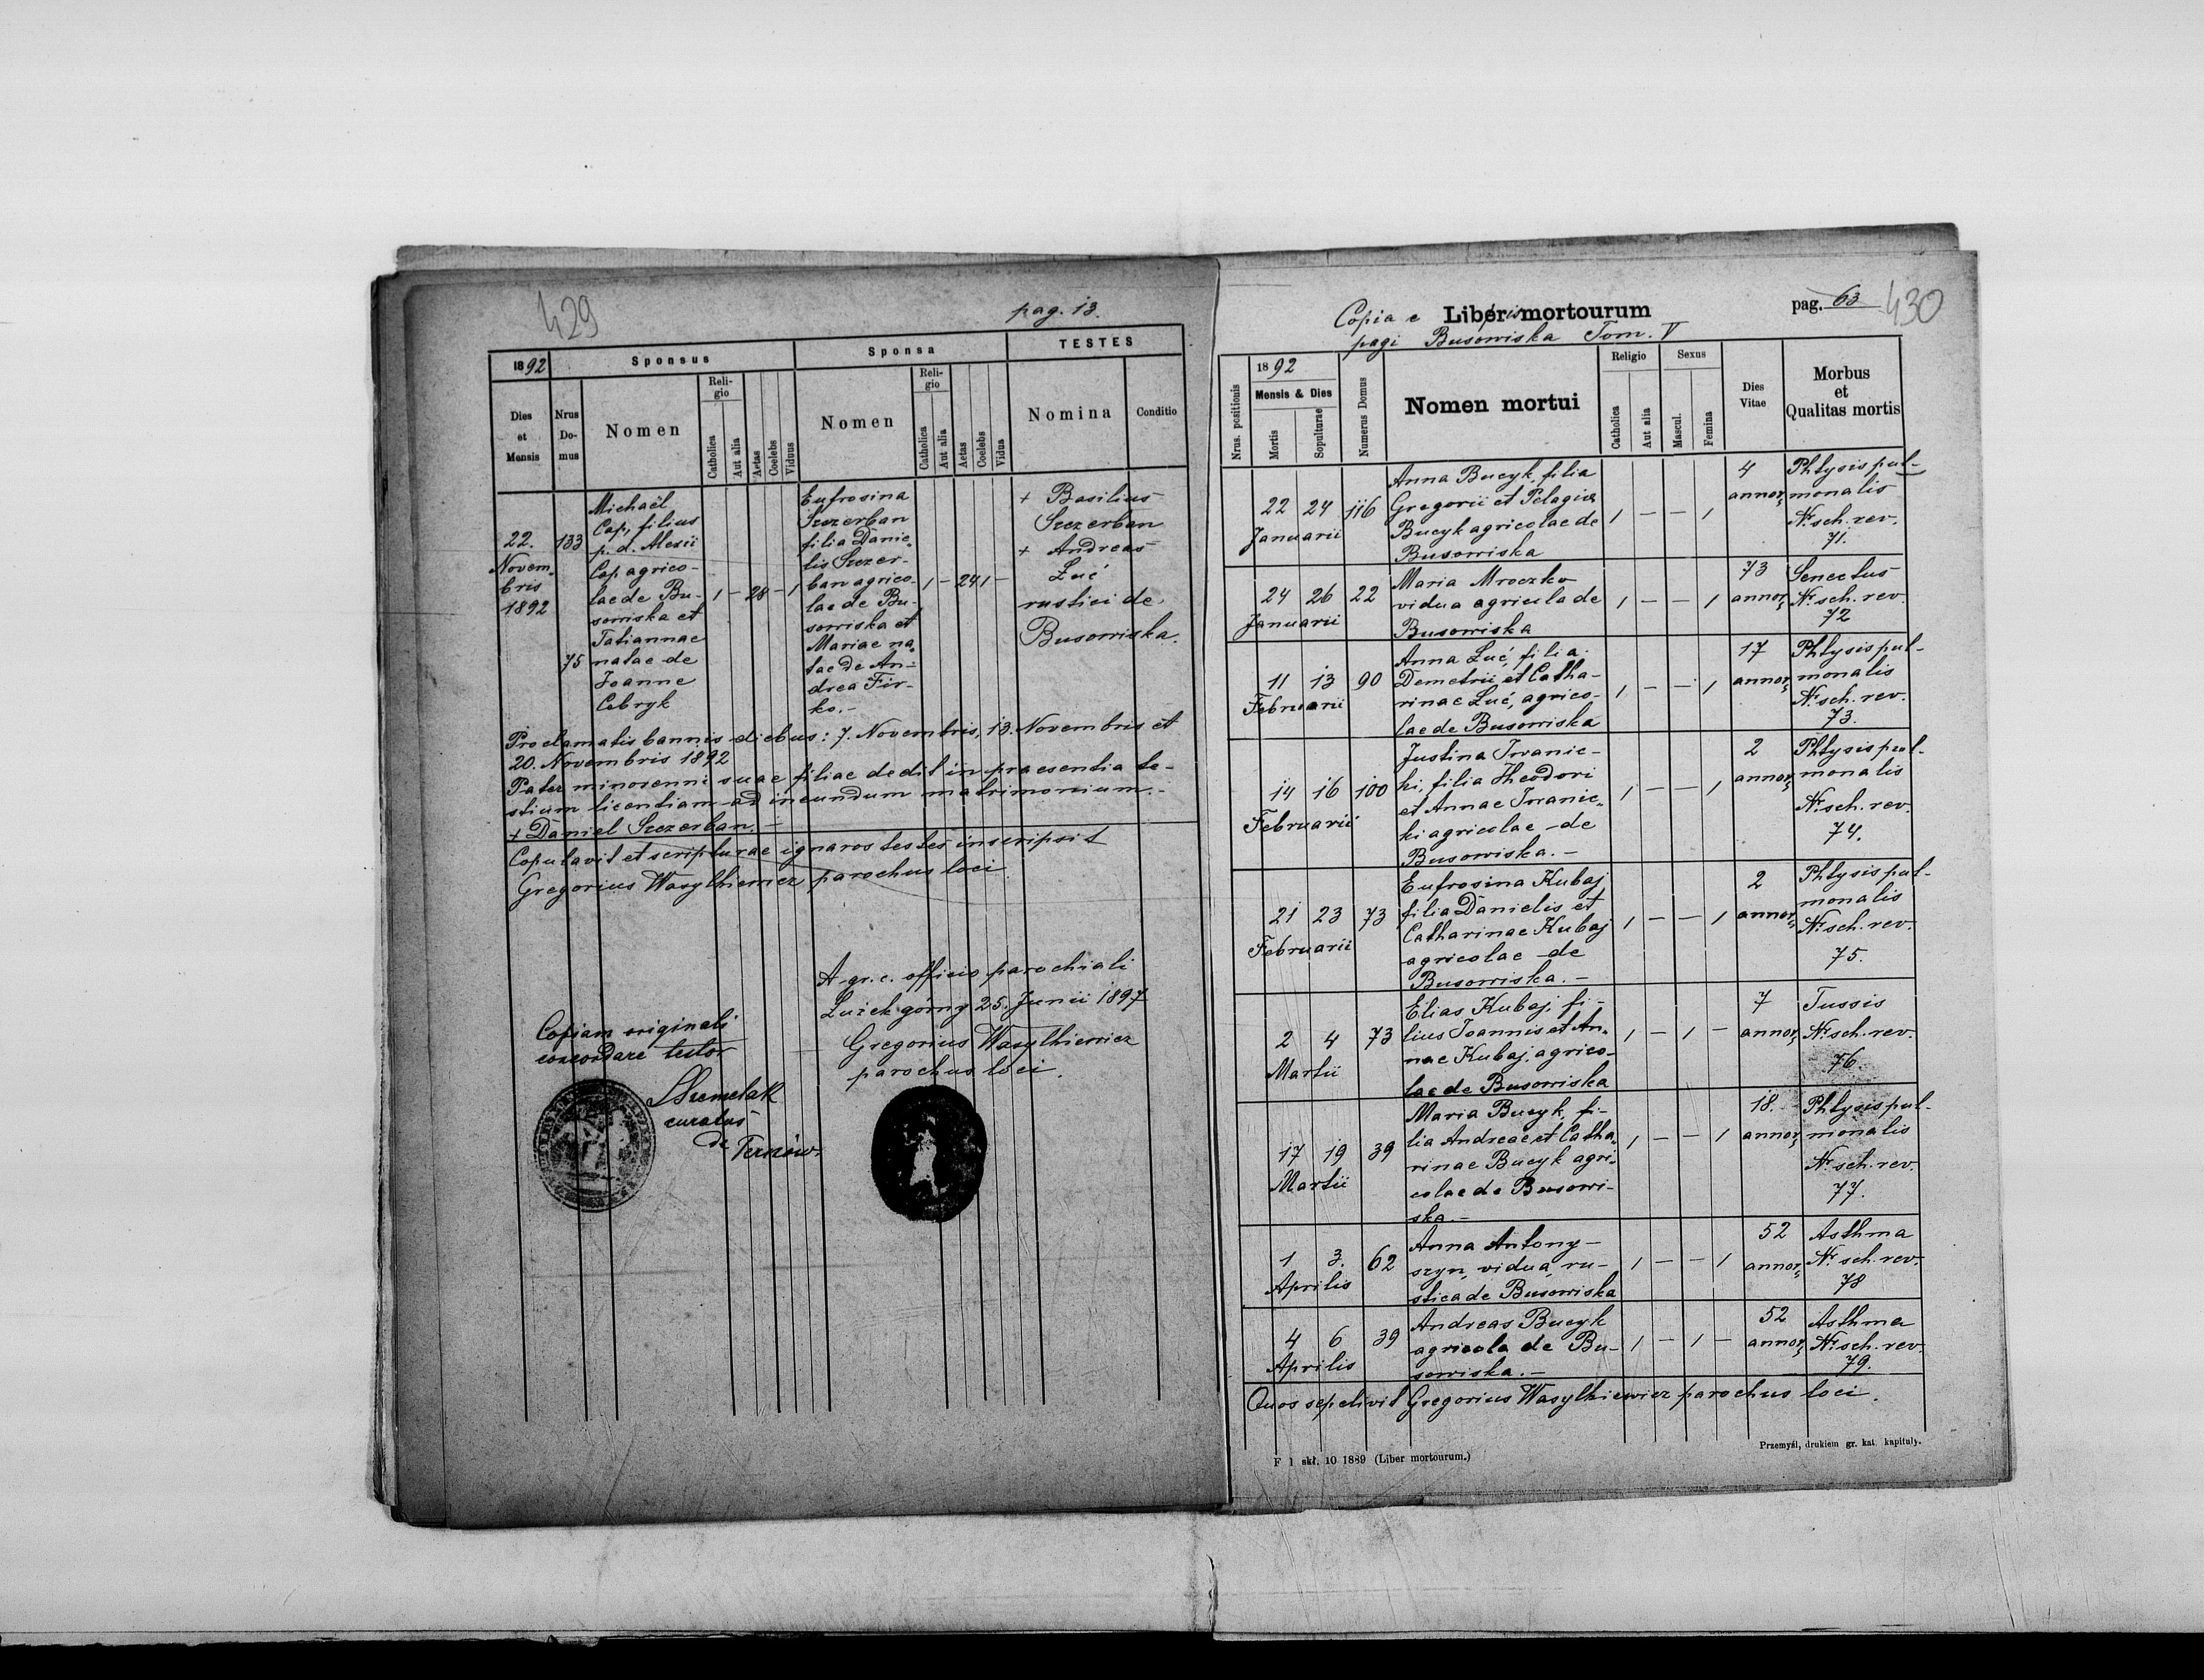 429
pag. 13.
1892
Sponsus
Sponsa
TESTES
Dies et Mensis
Nrus Do-mus
Nomen
Reli-gio
Catholica
Aut alia
Aetas
Coelebs
Viduus
Nomen
Reli-gio
Catholica
Aut alia
Aetas
Coelebs
Vidua
Nomina
Conditio
22.
Novem-
bris
1892
133
75
Michaël
Cap, filius
p. d. Alexii
Cap agrico-
lae de Bu-
sowiska et
Tatiannae
natae de
Joanne
Cebryk
1 — 28 — 1
Eufrosina
Szczerban
filia Danie-
lis Szczer-
ban agrico-
lae de Bu-
sowiska et
Mariae na-
tae de An-
drea Fir-
ko.—
1 — 24 1 —
+ Basilius
Szczerban
+ Andreas
Luć
rustici de
Busowiska.
Proclamatis bannis diebus: 7. Novembris, 13. Novembris et
20. Novembris 1892
Pater minorenni suae filiae dedit in praesentia te-
stium licentiam ad ineundum matrimonium.—
+ Daniel Szczerban.—
Copulavit et scripturae ignaros testes inscripsit
Gregorius Wasylkiewicz parochus loci
A gr. c. officio parochiali
Lużek górny 25. Junii 1897
Gregorius Wasylkiewicz
parochus loci.
Copiam originali
concordare testor
curatus
de
430
Copia e Libris mortourum
pagi Busowiska Tom. V
pag. 63
Nrus. positionis
1892
Mensis & Dies
Mortis
Sepulturae
Numerus Domus
Nomen mortui
Religio
Catholica
Aut alia
Sexus
Mascul.
Femina
Dies Vitae
Morbus
et
Qualitas mortis
22 24 116
Januarii
Anna Bucyk, filia
Gregorii et Pelagiae
Bucyk agricolae de
Busowiska
1 — — 1
4
annor.
Phtysis pul-
monalis
Nr. sch. rev.
71.
24 26 22
Januarii
Maria Mroczko
vidua agricola de
Busowiska
1 — — 1
73
annor.
Senectus
Nr. sch. rev.
72
11 13 90
Februarii
Anna Luć, filia
Demetrii et Catha-
rinae Luć, agrico-
lae de Busowiska
1 — — 1
17
annor.
Phtysis pul-
monalis
Nr. sch. rev.
73.
14 16 100
Februarii
Justina Iwanic-
ki, filia Theodori
et Annae Iwanic-
ki agricolae de
Busowiska.—
1 — — 1
2
annor.
Phtysis pul-
monalis
Nr. sch. rev.
74.
21 23 73
Februarii
Eufrosina Kubaj
filia Danielis et
Catharinae Kubaj
agricolae de
Busowiska.—
1 — — 1
2
annor.
Phtysis pul-
monalis
Nr. sch. rev.
75.
2 4 73
Martii
Elias Kubaj, fi-
lius Joannis et An-
nae Kubaj, agrico-
lae de Busowiska
1 — 1 —
7
annor.
Tussis
Nr. sch. rev.
76.
17 19 39
Martii
Maria Bucyk, fi-
lia Andreae et Catha-
rinae Bucyk agri-
colae de Busowi-
ska.—
1 — — 1
18.
annor.
Phtysis pul-
monalis
Nr. sch. rev.
77.
1 3. 62
Aprilis
Anna Antony-
szyn, vidua, ru-
stica de Busowiska
1 — — 1
52
annor.
Asthma
Nr. sch. rev.
78
4 6 39
Aprilis
Andreas Bucyk
agricola de Bu-
sowiska.—
1 — 1 —
52
annor.
Asthma
Nr. sch. rev.
79.
Quos sepelivit Gregorius Wasylkiewicz parochus loci.
F 1 skł. 10 1889 (Liber mortourum.)
Przemyśl, drukiem gr. kat. kapituły.